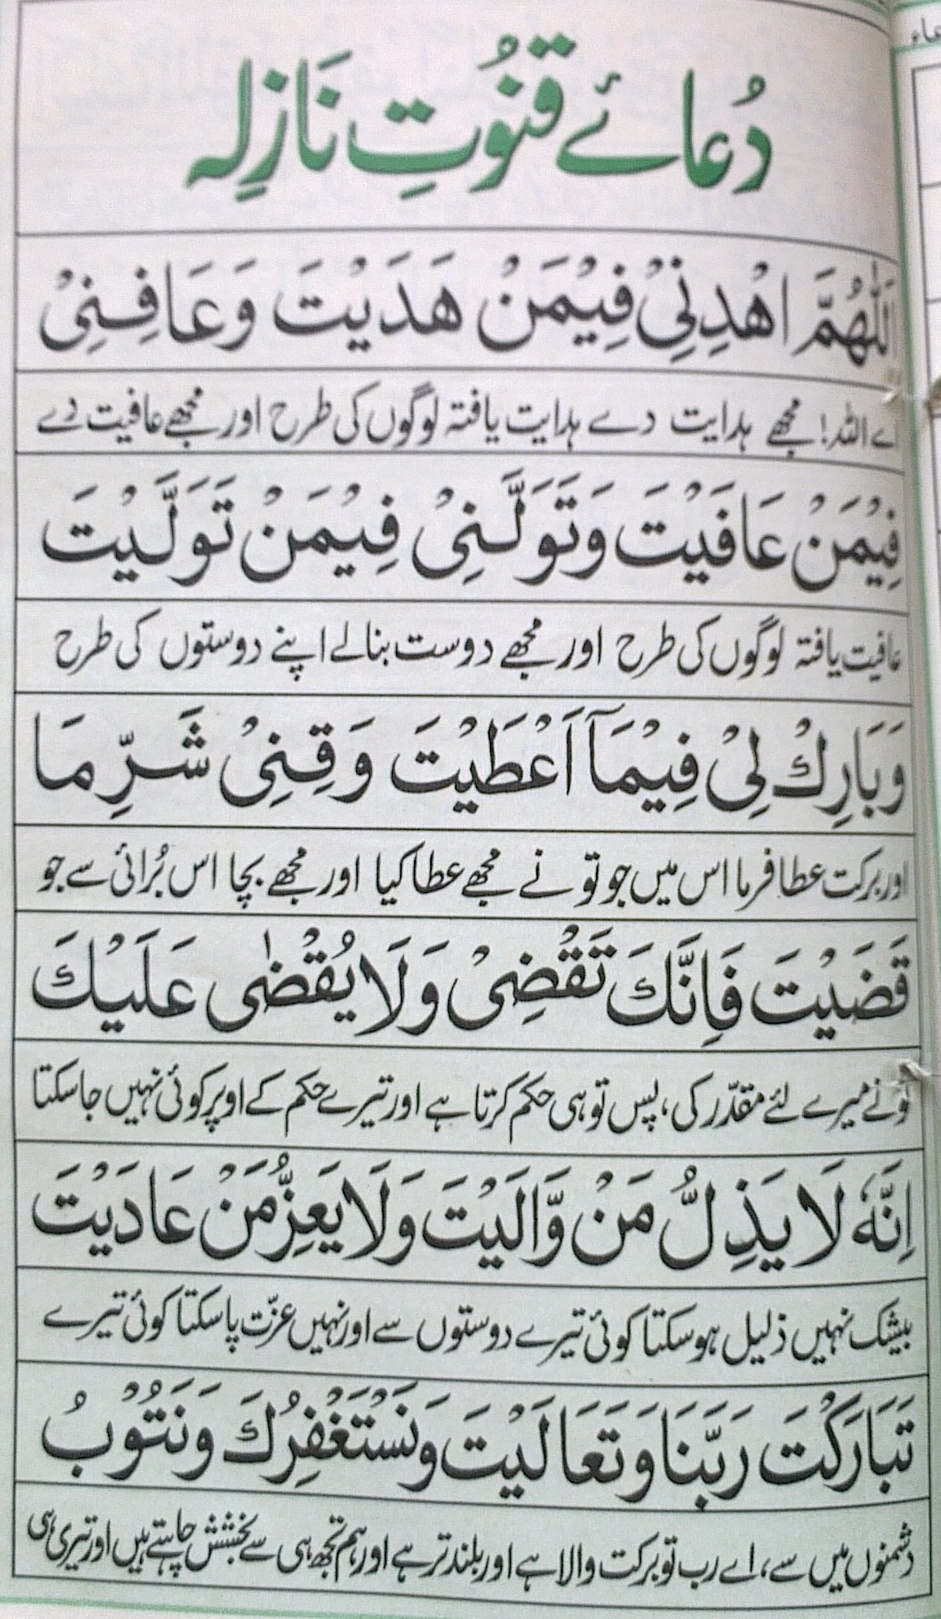 دُعائے قنوُتِ نَازِلہ
اَللّٰهُمَّ اهْدِنِيْ فِيْمَنْ هَدَيْتَ وَعَافِنِيْ
اے اللہ! مجھے ہدایت دے ہدایت یافتہ لوگوں کی طرح اور مجھے عافیت دے
فِيْمَنْ عَافَيْتَ وَتَوَلَّنِيْ فِيْمَنْ تَوَلَّيْتَ
عافیت یافتہ لوگوں کی طرح اور مجھے دوست بنالے اپنے دوستوں کی طرح
وَبَارِكْ لِيْ فِيْمَآ اَعْطَيْتَ وَقِنِيْ شَرَّ مَا
اور برکت عطا فرما اس میں جو تو نے مجھے عطا کیا اور مجھے بچا اس بُرائی سے جو
قَضَيْتَ فَاِنَّكَ تَقْضِيْ وَلَا يُقْضٰى عَلَيْكَ
تونے میرے لئے مقدّر کی، پس تو ہی حکم کرتا ہے اور تیرے حکم کے اوپر کوئی نہیں جاسکتا
اِنَّهٗ لَا يَذِلُّ مَنْ وَّالَيْتَ وَلَا يَعِزُّ مَنْ عَادَيْتَ
بیشک نہیں ذلیل ہوسکتا کوئی تیرے دوستوں سے اور نہیں عزّت پاسکتا کوئی تیرے
تَبَارَكْتَ رَبَّنَا وَتَعَالَيْتَ وَنَسْتَغْفِرُكَ وَنَتُوْبُ
دشمنوں میں سے، اے رب تو برکت والا ہے اور بلند تر ہے اور ہم تجھ ہی سے بخشش چاہتے ہیں اور تیری ہی